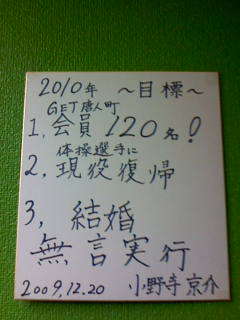 2010年 ～目標～
GET唐人町
1, 会員 120名!
体操選手に
2, 現役復帰
3, 結婚
無言実行
2009,12.20 小野寺 京介